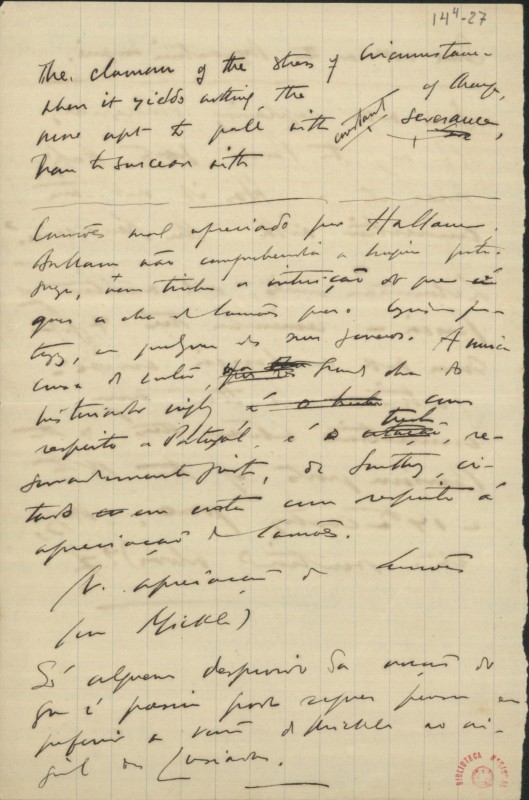 14⁴-27
The clamour of the stress of circumstance
when it yields nothing, the of change,
more apt to pall with constant severance,
than to succeed with
Camões mal apreciado por Hallam.
Hallam não comprehendia a lingua portu-
gueza, nem tinha a intuição do que é
que a obra de Camões para
. A unica
cousa de , grande obra do
historiador inglez é o trecho com
respeito a Portugal, é o trecho, re-
sumadamente , de Southey, ci-
tado em nota com respeito á
apreciação de Camões.
N. apreciação de Camões
(em Mickle)
Só alguem desprovido da noção do
que é poesia pode sequer pensar em
preferir a versão de Mickle ao ori-
ginal dos Lusiadas.
BIBLIOTECA NACIONAL